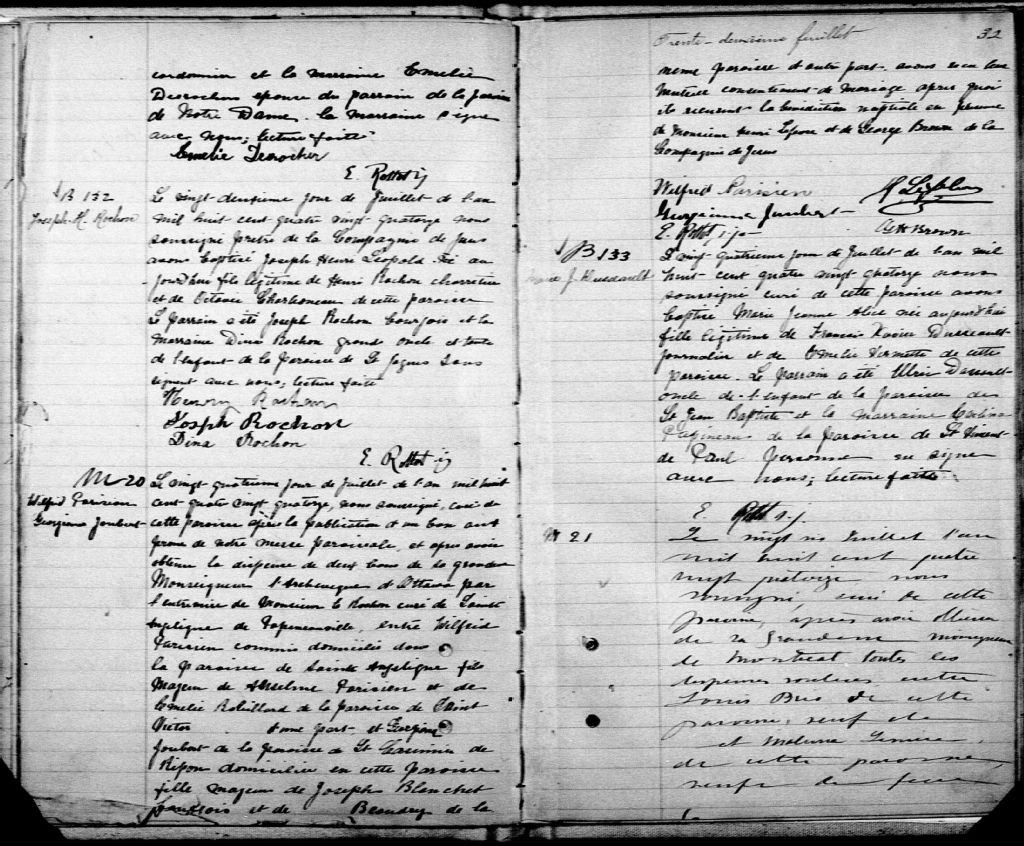 cordonnier et la marraine Emelie
Desrochers epouse du parrain de la parois
de Notre Dame. la marraine signe
avec nous; lecture faite
Emelie Desrocher
E. Rottot sj
B 132
Joseph-H. Rochon
Le vingt-deuxieme jour de Juillet de l'an
mil huit cent quatre vingt quatorze nous
soussigné pretre de la Compagnie de Jesus
avons baptisé Joseph Henri Leopold né au
jourd'hui fils légitime de Henri Rochon charretier
et de Octavie Charboneau de cette paroisse
Le parrain a été Joseph Rochon bourgois et la
marraine Dina Rochon grand oncle et tante
de l'enfant de la Paroisse de St Jaques Sous
signent avec nous; lecture faite
Henry Rochon
Joseph Rochon
Dina Rochon
E. Rottot sj
M 20
Wilfrid Parisien
Georgianna Joubert
Le vingt quatrieme jour de Juillet de l'an mil huit
cent quatre vingt quatorze, nous soussigné, curé de
cette paroisse après la publication d'un ban au
prone de notre messe paroissiale, et apres avoir
obtenu la dispense de deux bans de sa grandeur
Monseigneur l'Archeveque d'Ottawa par
l'entremise de Monsieur le Rochon curé de Sainte
Angelique de Papineauville, entre Wilfrid
Parisien commis domicilié dans
la paroisse de Sainte Angelique fils
Majeur de Anselme Parisien et de
Emelie Robillard de la paroisse de Saint
Victor d'une part et
Joubert de la paroisse de St Casimir de
Ripon domiciliée en cette paroisse
fille majeure de Joseph Blanchet
et de Beaudry de la
Trente-deuxième feuillet
32
meme paroisse d'autre part. avons reçu leur
mutuel consentement de Mariage après quoi
ils reçurent la benediction nuptiale en présence
de Monsieur Henri Lefebvre et de George Brown de la
Compagnie de Jesus
Wilfrid Parisien
Georgianna Joubert
E. Rottot s.j.
Brown
B 133
J. Dussault
Le vingt quatrieme jour de Juillet de l'an mil
huit cent quatre vingt quatorze nous
soussigné curé de cette paroisse avons
baptisé Marie Jeanne Alice née aujourd'hui
fille légitime de Francis Xavier Dussault
journalier et de Emelie Vermette de cette
paroisse. Le parrain a été Ulric Dussault
oncle de l'enfant de la paroisse de
St Jean Baptiste et la marraine
Papineau de la paroisse de St Vincent
de Paul personne ne signe
avec nous; lecture faite
E. Rottot s.j.
M 21
Le vingt six Juillet l'an
mil huit cent quatre
vingt quatorze nous
soussigné, curé de cette
paroisse, après avoir obtenu
de sa Grandeur monseigneur
de Montréal toutes les
dispenses voulues entre
Louis de cette
paroisse, veuf de
et
de cette paroisse,
veufe de feu